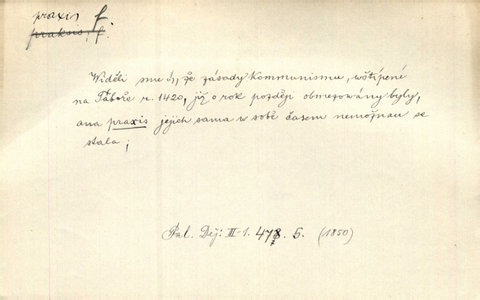 praxis f.
praksis, f.
Widěli sme ..., že zásady kommunismu, wštípené
na Táboře r. 1420, již o rok později obmezowány byly,
ana praxis jejich sama w sobě časem nemožnau se
stala;
Pal. Děj. III-1. 478. 5. (1850)